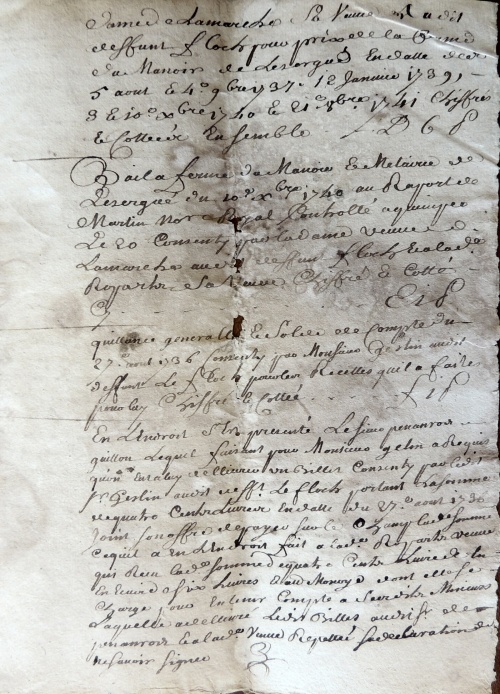 dame de Lamarche sa veuve audit
deffunt floch pour prix de la ferme
du Manoir de Lesergué En datte des
5 aout et 4e 9bre 1737. 12 Janvier 1739,
3 et 10e xbre 1740 et 21e 1741 Chiffrés
et Cottées Ensemble D 6 P
Bail a ferme du Manoir et Metairie de
Lesergué du 10e xbre 1740 au Raport de
Martin Nore Royal Controllé a quimper
Le 20 Consenty par la dame veuve
Lamarche audit deffunt floch et a lade
Reparte sa veuve Chiffré et Cotté
E 1 P
quittance generalle et Solde de Compte du
27e aout 1736 Consenty par Monsieur Geslin audit
deffunt Le floch pour les Recettes quil a faites
pour luy Chiffré et Cottée f 1 P
En Lendroit sest presenté Le sieur penanros
guillou Lequel faisant pour Monsieur geslin a Requis
de un Billet Consenty par ledit
sr Geslin audit defft Le floch portant la somme
de quatre Cents Livres En datte du 27e aout 1736
Joint son offre de payer sur le Champ lade somme
Ce quil a En Lendroit fait a lade Reparte veuve
qui Recu lade somme de quatre Cents Livres
En Ecus de six Livres et dont elle se
Charge pour En tenir Compte a
Laquelle a delivré Ledit Billet audit sr de
penanros et a lade veuve Repetté sa declaration de
ne savoir signer